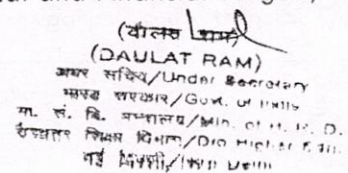 (दौलत राम)
(DAULAT RAM)
अवर सचिव/Under Secretary
भारत सरकार/Govt. of India
मा. सं. वि. मन्त्रालय/Min. of H. R. D.
उच्चतर शिक्षा विभाग/D/o Higher Edu.
नई दिल्ली/New Delhi